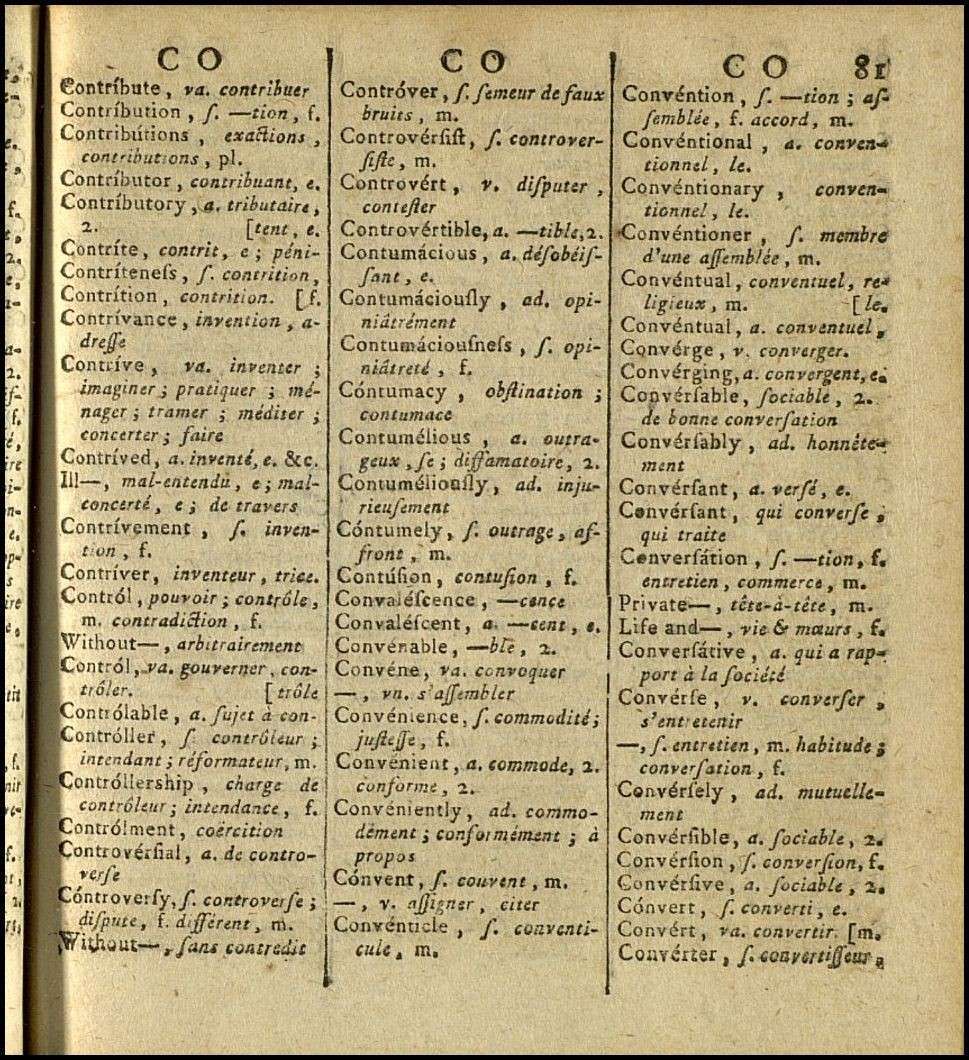 C O
Contríbute, va. contribuer
Contribútion, ſ. —tion, f.
Contribútions, exactions,
contributions, pl.
Contríbutor, contribuant, e.
Contríbutory, a. tributaire,
2. [tent, e.
Contríte, contrit, e; péni-
Contríteneſs, ſ. contrition,
Contrítion, contrition. [f.
Contrívance, invention, a-
dreſſe
Contríve, va. inventer;
imaginer; pratiquer; mé-
nager; tramer; méditer;
concerter; faire
Contríved, a. inventé, e. &c.
Ill—, mal-entendu, e; mal-
concerté, e; de travers
Contrívement, ſ. inven-
tion, f.
Contríver, inventeur, trice.
Contról, pouvoir; contrôle,
m. contradiction, f.
Without—, arbitrairement
Contról, va. gouverner, con-
trôler. [trôle
Contrólable, a. ſujet à con-
Contróller, ſ. contrôleur;
intendant; réformateur, m.
Contróllership, charge de
contrôleur; intendance, f.
Contrólment, coërcition
Controvérſial, a. de contro-
verſe
Cóntroverſy, ſ. controverſe;
diſpute, f. différent, m.
Without—, ſans contredit
C O
Contróver, ſ. ſemeur de faux
bruits, m.
Controvérſiſt, ſ. controver-
ſiſte, m.
Controvért, v. diſputer,
conteſter
Controvértible, a. —tible, 2.
Contumácious, a. déſobéiſ-
ſant, e.
Contumáciouſly, ad. opi-
niâtrément
Contumáciouſneſs, ſ. opi-
niâtreté, f.
Cóntumacy, obſtination;
contumace
Contumélious, a. outra-
geux, ſe; diffamatoire, 2.
Contuméliouſly, ad. inju-
rieuſement
Cóntumely, ſ. outrage, af-
front, m.
Contúſion, contuſion, f.
Convaléſcence, —cence
Convaléſcent, a. —cent, e.
Convénable, —ble, 2.
Convéne, va. convoquer
—, vn. s'aſſembler
Convénience, ſ. commodité;
juſteſſe, f.
Convénient, a. commode, 2.
conforme, 2.
Convéniently, ad. commo-
dément; conformément; à
propos
Cónvent, ſ. couvent, m.
—, v. aſſigner, citer
Convénticle, ſ. conventi-
cule, m.
C O 81
Convéntion, ſ. —tion; aſ-
ſemblée, f. accord, m.
Convéntional, a. conven-
tionnel, le.
Convéntionary, conven-
tionnel, le.
Convéntioner, ſ. membre
d'une aſſemblée, m.
Convéntual, conventuel, re-
ligieux, m. [le.
Convéntual, a. conventuel,
Convérge, v. converger.
Convérging, a. convergent, e.
Convérſable, ſociable, 2.
de bonne converſation
Convérſably, ad. honnête-
ment
Convérſant, a. verſé, e.
Convérſant, qui converſe,
qui traite
Converſátion, ſ. —tion, f.
entretien, commerce, m.
Private—, tête-à-tête, m.
Life and—, vie & mœurs, f.
Converſátive, a. qui a rap-
port à la ſociété
Convérſe, v. converſer,
s'entretenir
—, ſ. entretien, m. habitude;
converſation, f.
Convérſely, ad. mutuelle-
ment
Convérſible, a. ſociable, 2.
Convérſion, ſ. converſion, f.
Convérſive, a. ſociable, 2.
Cónvert, ſ. converti, e.
Convért, va. convertir. [m.
Convérter, ſ. convertiſſeur,